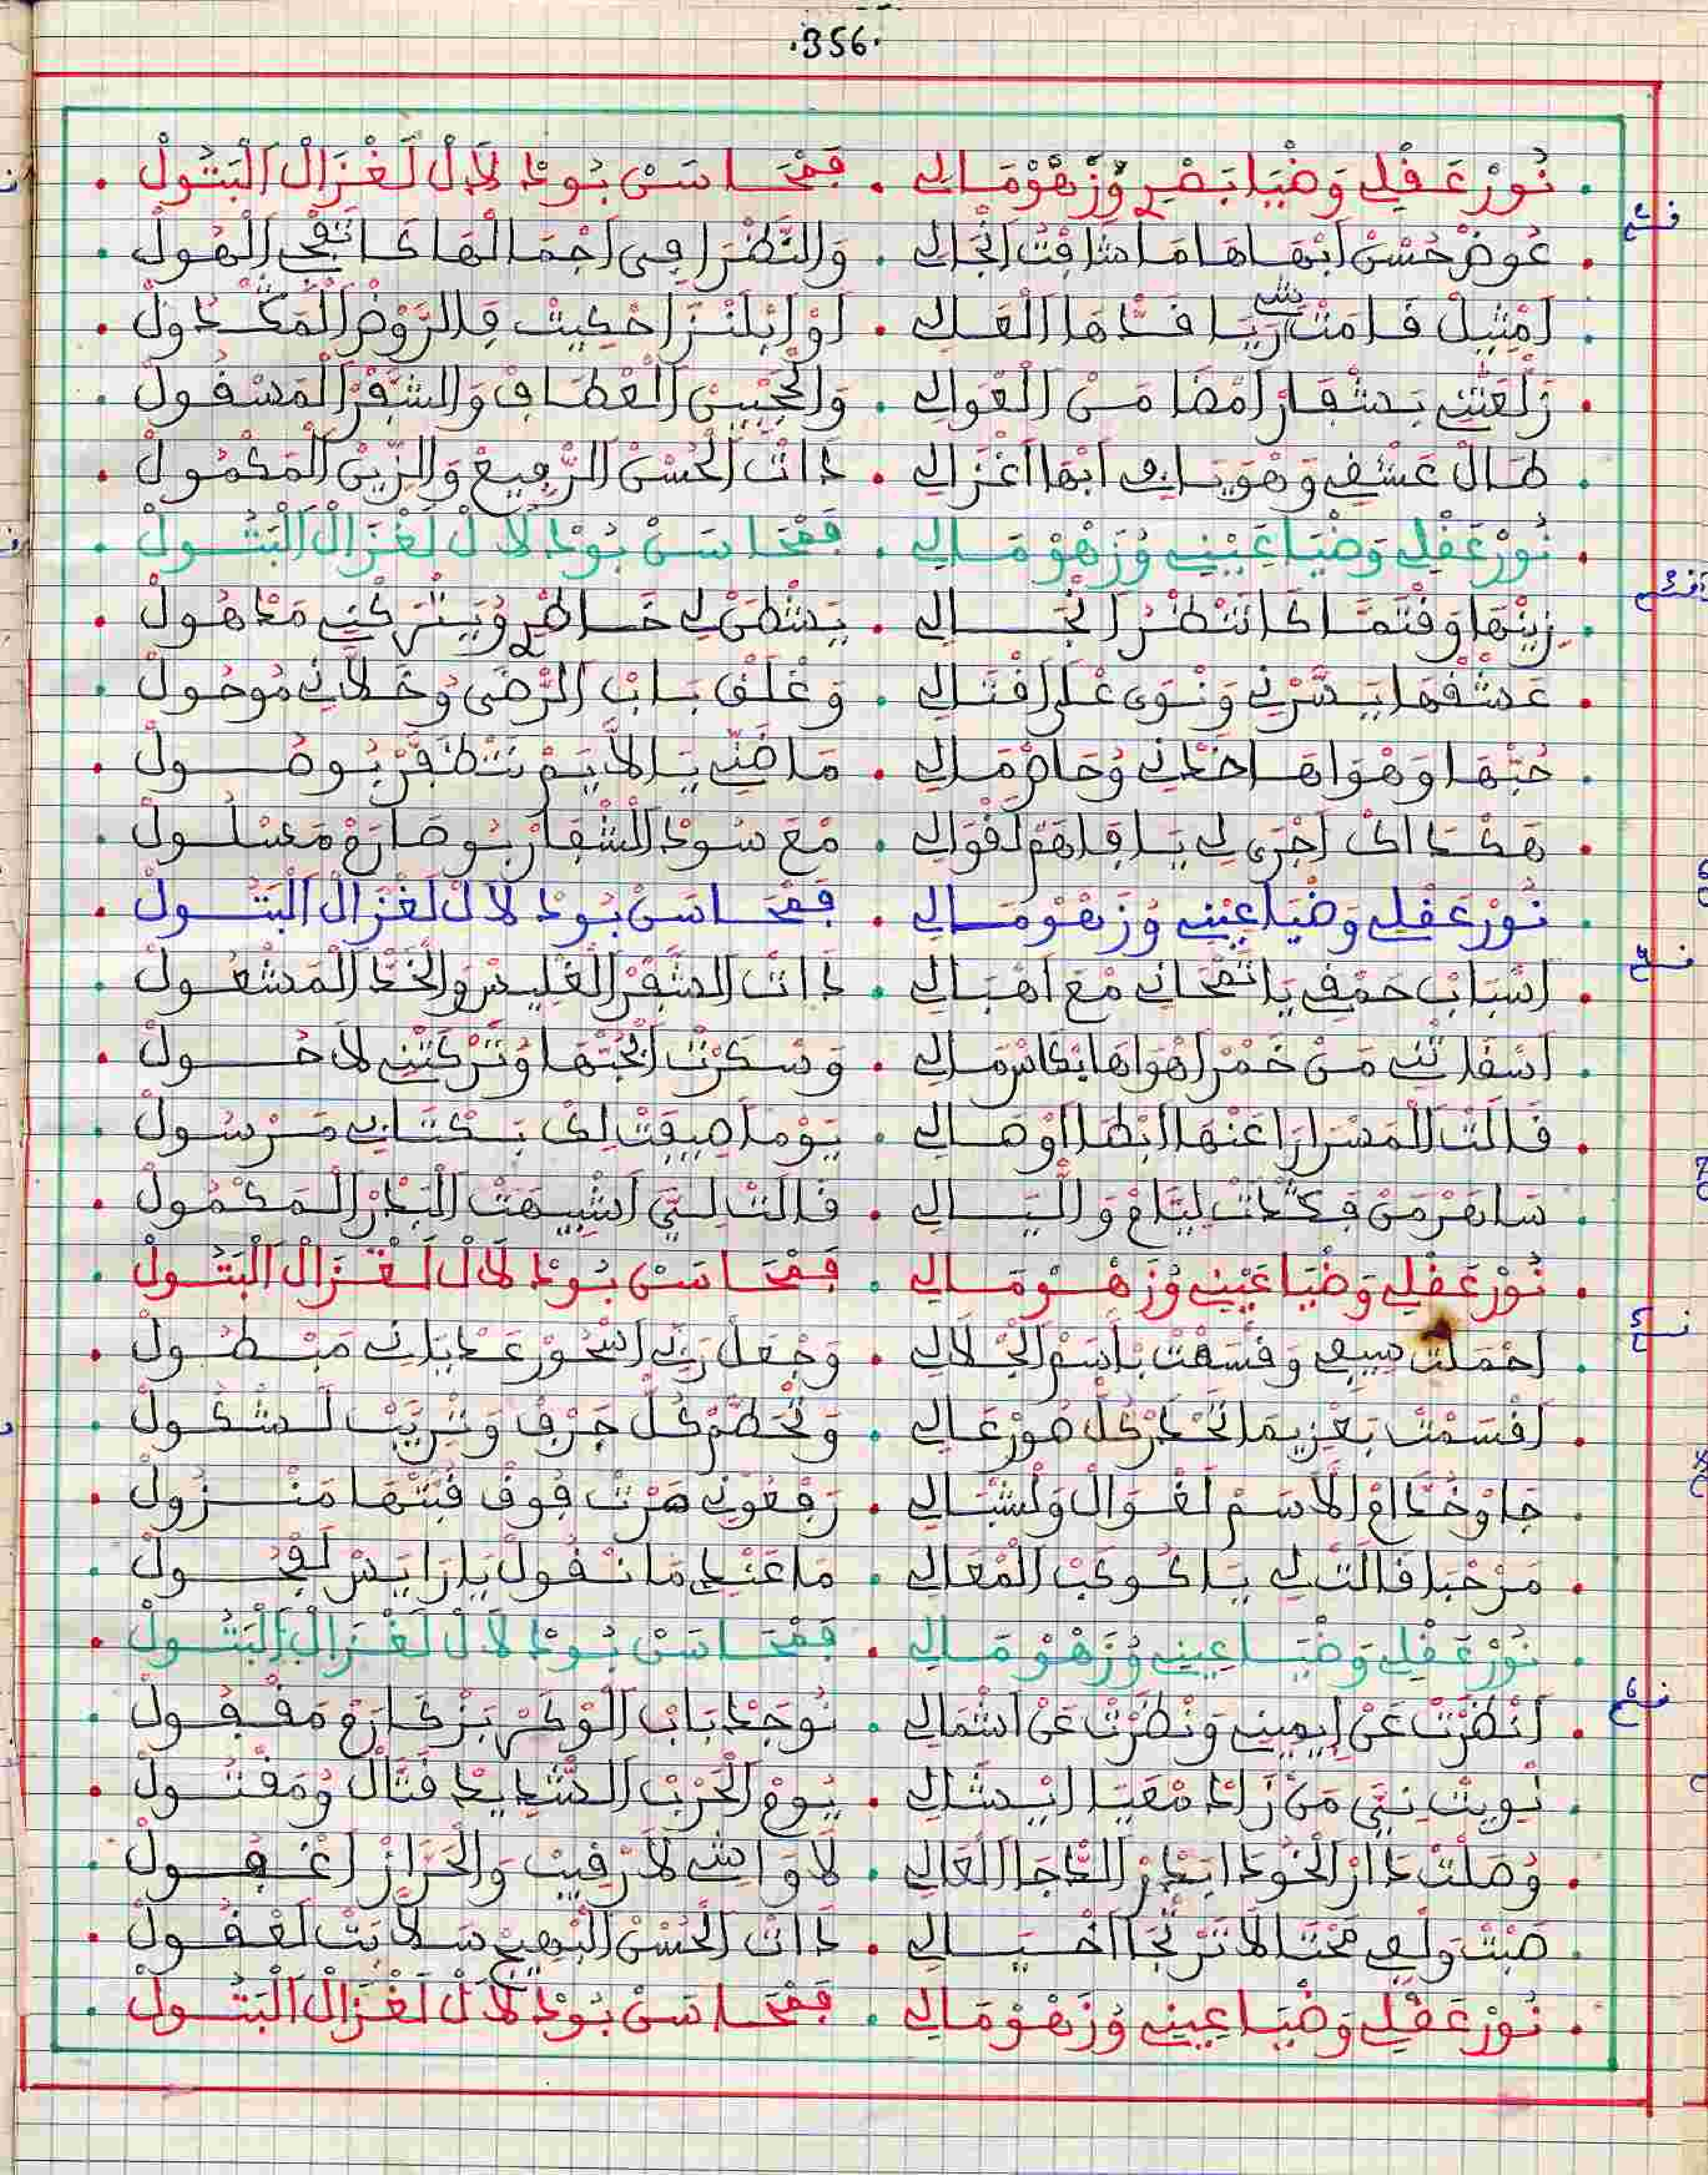 .356.
نُورْ عَقْلِي وَضْيَا بَصْرِي وُزَهْوْ مَالِي . فَمْحَاسَنْ بُودْلَالْ لَغْزَالْ اَلْبَتُولْ
قسم2
عُوضْ حُسْنْ ابْهَاهَا مَا شَافِتْ انْجَالِي . وَالنَّظْرَا فِي اجْمَالْهَا كَاتَنْفْجِي الْهُولْ
امْثِيلْ قَامَتْ رَيَا قَدّْهَا الْعَالِي . اوْ ايْلَنْزَا احْكِيتْ فِالرَّوْضْ الْمَكْدُولْ
زَلْعَتْنِي بَشْفَارْ امْضَا مَنْ الْعْوَالِي . وَالْجْبِينْ الْعْطَافْ وَالشّْفَرْ الْمَسْقُولْ
طَالْ عَشْقِي وَهْوَيَا فِي ابْهَا اغْزَالِي . دَاتْ الْحُسْنْ الرّْفِيعْ وَالزِّينْ الْمَكْمُولْ
نُورْ عَقْلِي وَضْيَا عَيْنِي وُزَهْوْ مَالِي . فَمْحَاسَنْ بُودْلَالْ لَغْزَالْ اَلْبَتُولْ
قسم3
زِينْهَا وَقْتْمَا كَاتَنْظْرُ انْجَالِي . يَشْطَنْ لِي خَاطْرِي وُيَتْرَكْنِي مَدْهُولْ
عَشْقْهَا يَسَّرْنِي وَنْوَى عْلَى اقْتَالِي . وَغْلَقْ بَابْ الرّْضَى وُخَلَّانِي مُوحُولْ
حُبّْهَا وَهْوَاهَا خَدْنِي وُحَازْ مَالِي . مَا ضَنِّي يَا لَايَمْ نَظْفَرْ بُوصُولْ
هَكْدَاكْ اجْرَى لِي يَا فَاهَمْ لَقْوَالِي . مْعَ سُودْ الشّْفَارْ بُوصَارَمْ مَسْلُولْ
نُورْ عَقْلِي وَضْيَا عَيْنِي وُزَهْوْ مَالِي . فَمْحَاسَنْ بُودْلَالْ لَغْزَالْ اَلْبَتُولْ
قسم4
اسْبَابْ حَمْقِي يَا تَمْحَانِي مْعَ اهْبَالِي . دَاتْ الشّْفَرْ الْغْلِيسْ وَالْخَدّْ الْمَشْعُولْ
اسْقَاتْنِي مَنْ خَمْرْ اهْوَاهَا بْكَاسْ مَالِي . وَسْكَرْتْ ابْحُبّْهَا وُتَرْكَتْنِي لَاحُولْ
قَالَتْ الْمَسْرَارَا عَنْهَا ابْطَا اوْصَالِي . يَوْمًا صِيفَتْ لِكْ بَكْتَابِي مَرْسُولْ
سَاهَرْ مَنْ فِكْدَتْ لِيَّامْ وَالّْيَالِي . قَالَتْ لِتِّي اشْبِيهَتْ الْبَدْرْ الْمَكْمُولْ
نُورْ عَقْلِي وَضْيَا عَيْنِي وُزَهْوْ مَالِي . فَمْحَاسَنْ بُودْلَالْ لَغْزَالْ اَلْبَتُولْ
قسم5
احْمَلْتْ سِيفِي وَقْسَمْتْ بَاسْمْ الْجْلَالِي . وَجْعَلْ رَبِّي اسْحُورْ عَدْيَانِي مَبْطُولْ
اقْسَمْتْ بَعْزِيمَا تَحْدَرْ كُلّْ صُورْ عَالِي . وَتْحَطَّمْ كُلّْ جَرْفْ وَتْرَيَّبْ لَشْكُولْ
جَاوْ خُدَّامْ الَاسَمْ لَغْوَالْ وَلَشْبَالِي . رَفْعُونِي صَرْتْ فُوقْ قُبَّتْهَا مَنْزُولْ
مَرْحْبَا قَالَتْ لِي يَا كُوكَبْ الْمْعَالِي . مَا عَنْدِي مَا نْقُولْ يَا رَايَسْ لَفْحُولْ
نُورْ عَقْلِي وَضْيَا عِينِي وُزَهْوْ مَالِي . فَمْحَاسَنْ بُودْلَالْ لَغْزَالْ اَلْبَتُولْ
قسم6
انْظَرْتْ عَنْ ايمِينِي وَنْظَرْتْ عَنْ اشْمَالِي . نُوجَدْ بَابْ الْوْكَرْ بَزْكَارَمْ مَقْفُولْ
نْوِيتْ نِيتِّي مَنْ زَادْ مْعَيَا ايْسَالِي . يُومْ الْحَرْبْ الشّْدِيدْ قَتَّالْ وُمَقْتُولْ
وُصَلْتْ دَارْ الْخُودَا بَدْرْ الدّْجَا الْعَالِي . لَا وَاشِي لَا رْقِيبْ وَالْحَرَّازْ اغْفُولْ
صَبْتْ وَلْفِي مَحْتَالَا تَرْتْجَا اخْيَالِي . دَاتْ الْحُسْنْ الْبْهِيجْ سَلَّابَتْ لَعْقُولْ
نُورْ عَقْلِي وَضْيَا عِينِي وُزَهْوْ مَالِي . فَمْحَاسَنْ بُودْلَالْ لَغْزَالْ اَلْبَتُولْ